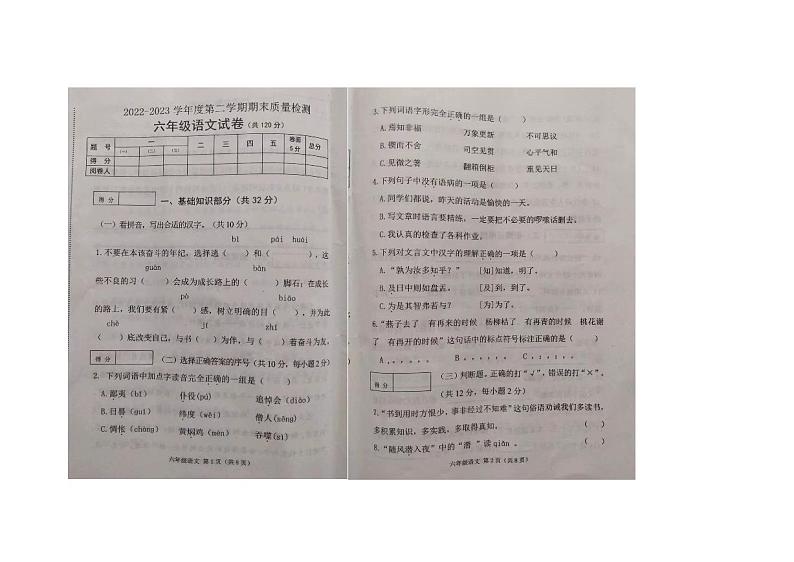 2022-2023 学年度第二学期期末质量检测
六年级语文试卷（共 120 分）
题 号 一 二 三 四 五 卷面5分 总分
（一） （二） （三）
得 分
阅卷人
得 分
一、基础知识部分（共 32 分）
（一）看拼音，写出合适的汉字。（共 10 分）
bì pái huái
1. 不要在本该奋斗的年纪，选择逃（ ）和（ ），这
guàn bàn
些不良的习（ ）会成为成长路上的（ ）脚石；在成长
pò biāo
的路上，我们要有紧（ ）感，树立明确的目（ ），并为此
chè jí zhì
（ ）底改变自己，与书（ ）为伴，与（ ）者奋斗为友，
得 分
（二）选择正确答案的序号（共 10 分，每小题 2 分）
2. 下列词语中加点字读音完全正确的一组是（ ）
A. 鄙夷（bǐ） 仆役(pú) 追悼会（diào）
B. 日晷（guǐ） 纬度（wěi） 僧人(sēng)
C. 惆怅（chàng） 黄焖鸡（mèn） 吞噬(sì)
六年级语文 第 1 页（共 8 页）
3. 下列词语字形完全正确的一组是（ ）
A. 焉知非福 万象更新 不可思议
B. 锲而不舍 司空见贯 心平气和
C. 见微之著 翻箱倒柜 重见天日
4. 下列句子中没有语病的一项是（ ）
A. 同学们都说，昨天的活动是愉快的一天。
B. 写文章时语言要精练，一定要把不必要的啰嗦话删去。
C. 我认真的检查了各科作业。
5. 下列对文言文中汉字的理解正确的一项是（ ）
A. “孰为汝多知乎？” [知]知道，明了。
B. 及日中则如盘盂。 [及]到，到了。
C. 为是其智弗若与？ [为]为了。
6. “燕子去了 有再来的时候 杨柳枯了 有再青的时候 桃花谢
了 有再开的时候”这句话中的标点符号标注正确的是（ ）
得 分
（三）判断题。正确的打“√”，错误的打“×”。
（共 12 分，每小题 2 分）
7. “书到用时方恨少，事非经过不知难”这句俗语劝诫我们多读书，
多积累知识，多实践，多取得真知。 （ ）
8. “随风潜入夜”中的“潜 ”读 qián 。 （ ）
六年级语文 第 2 页（共 8 页）